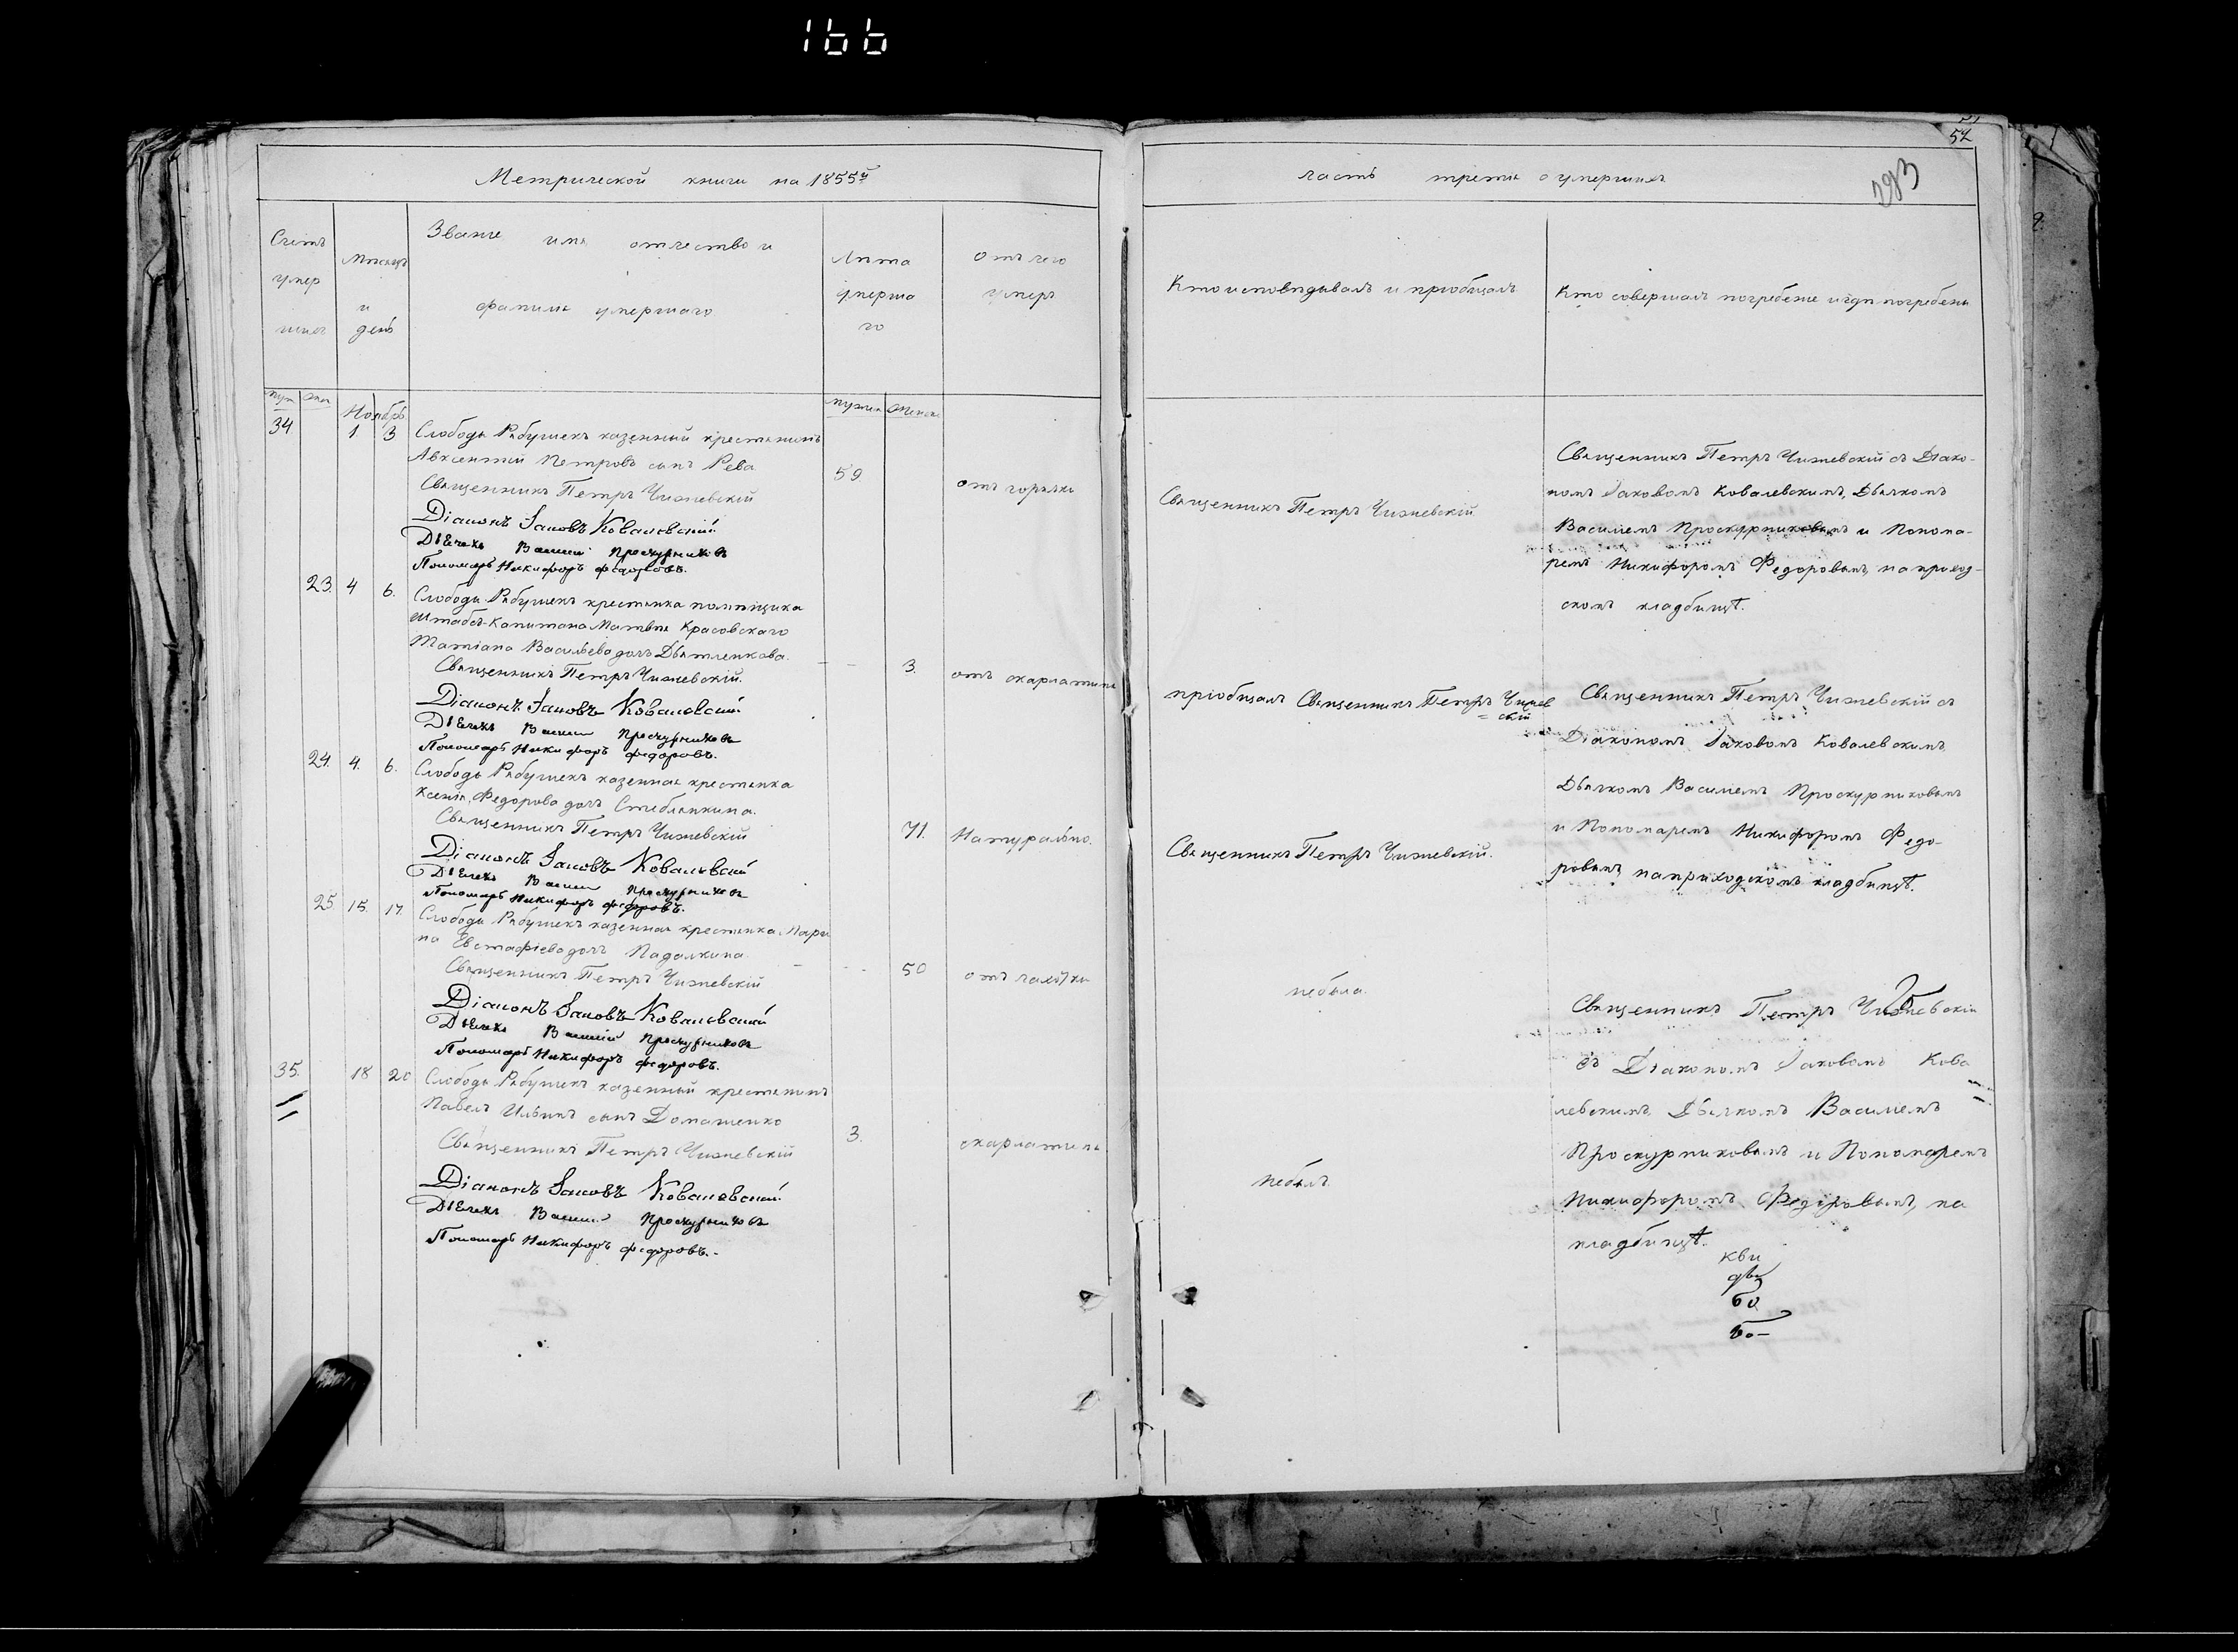 166
52
293
Метрической книги на 1855й
часть третья о умершихъ
Счетъ умер шихъ
Мѣсяцъ и день
Званіе имя отчество и
фамилія умершаго
Лѣта умерша го
Отъ чего умеръ
Кто исповѣдывалъ и пріобщалъ
Кто совершалъ погребеніе и гдѣ погребены
муж жен
Ноябрь
мужск женск
34 1 3 Слободы Рябушекъ казенный крестьянинъ
Авксентій Петровъ сынъ Рева
59
отъ горячки
Священникъ Петръ Чижевскій
Діаконъ Іаковъ Ковалевскій
Дьячекъ Василій Проскурниковъ
Пономарь Никифоръ Федоровъ.
Священникъ Петръ Чижевскій
Священникъ Петръ Чижевскій съ Діако-
номъ Іаковомъ Ковалевскимъ, Дьячкомъ
Василіемъ Проскурниковымъ и Понома-
ремъ Никифоромъ Федоровымъ, на приход-
скомъ кладбищѣ.
23. 4 6. Слободы Рябушекъ крестьянка помѣщика
Штабсъ-Капитана Матвѣя Красовскаго
Татіана Васильева дочь Дьятленкова.
3.
отъ скарлатины
Священникъ Петръ Чижевскій.
Діаконъ Іаковъ Ковалевскій
Дьячекъ Василій Проскурниковъ
Пономарь Никифоръ Федоровъ.
пріобщалъ Священникъ Петръ Чижев
=скій
Священникъ Петръ Чижевскій съ
Діакономъ Іаковомъ Ковалевскимъ,
Дьячкомъ Василіемъ Проскурниковымъ
и Пономаремъ Никифоромъ Федо-
ровымъ, на приходскомъ кладбищѣ.
24. 4. 6. Слободы Рябушекъ казенная крестьянка
Ксенія Федорова дочь Стеблянкина.
71.
Натурально.
Священникъ Петръ Чижевскій
Діаконъ Іаковъ Ковалевскій
Дьячекъ Василій Проскурниковъ
Пономарь Никифоръ Федоровъ.
Священникъ Петръ Чижевскій.
25. 15. 17. Слободы Рябушекъ казенная крестьянка Мари
на Евстафіева дочь Падалкина.
50
отъ чахотки
Священникъ Петръ Чижевскій
Діаконъ Іаковъ Ковалевскій
Дьячекъ Василій Проскурниковъ
Пономарь Никифоръ Федоровъ.
небыла.
Священникъ Петръ Чижевскій
съ Діакономъ Іаковомъ Кова
левскимъ, Дьячкомъ Василіемъ
Проскурниковымъ и Пономаремъ
Никифоромъ Федоровымъ, на
кладбищѣ.
35. 18 20 Слободы Рябушекъ казенный крестьянинъ
Павелъ Ильинъ сынъ Домашенко
3.
скарлатины
Священникъ Петръ Чижевскій
Діаконъ Іаковъ Ковалевскій
Дьячекъ Василій Проскурниковъ
Пономарь Никифоръ Федоровъ.
небылъ.